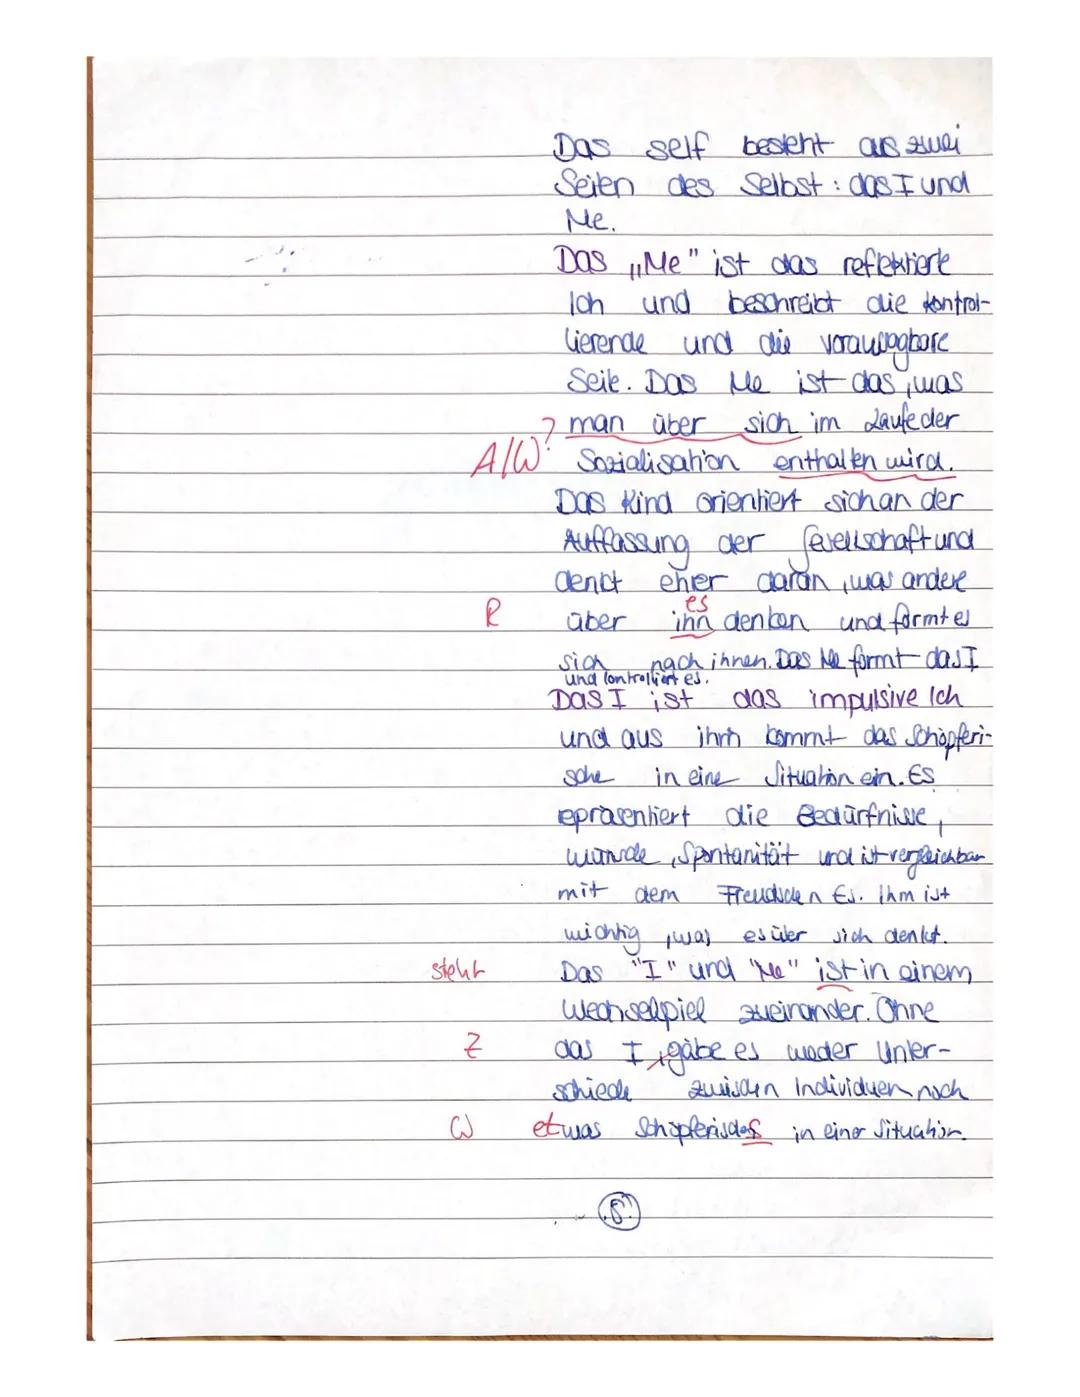 Das self besteht aus zwei
Seiten des Selbst: das I und
Me.
Das „Me" ist das reflektierte
Ich und beschreibt die kontrol-
lierende und die voraussagbare
Seite. Das Me ist das, was
man über sich im Laufe der
A/W? Sozialisation enthalten wird.
Das Kind orientiert sich an der
Auffassung der Gesellschaft und
denkt eher daran, was andere
es
R über ihn denken und formt es
sich nach ihnen. Das Me formt das I
und kontrolliert es.
Das I ist das impulsive Ich
und aus ihm kommt das Schöpferi-
sche in eine Situation ein. Es
epräsentiert die Bedürfnisse,
Spontanität und ist vergleichbar
mit dem Freudschen Es. Ihm ist
wichtig, was es über sich denkt.
steht Das "I" und "Me" ist in einem
Wechselspiel zueinander. Ohne
Z das I, gäbe es weder Unter-
schiede zwischen Individuen noch
W etwas Schöpferisches in einer Situation.